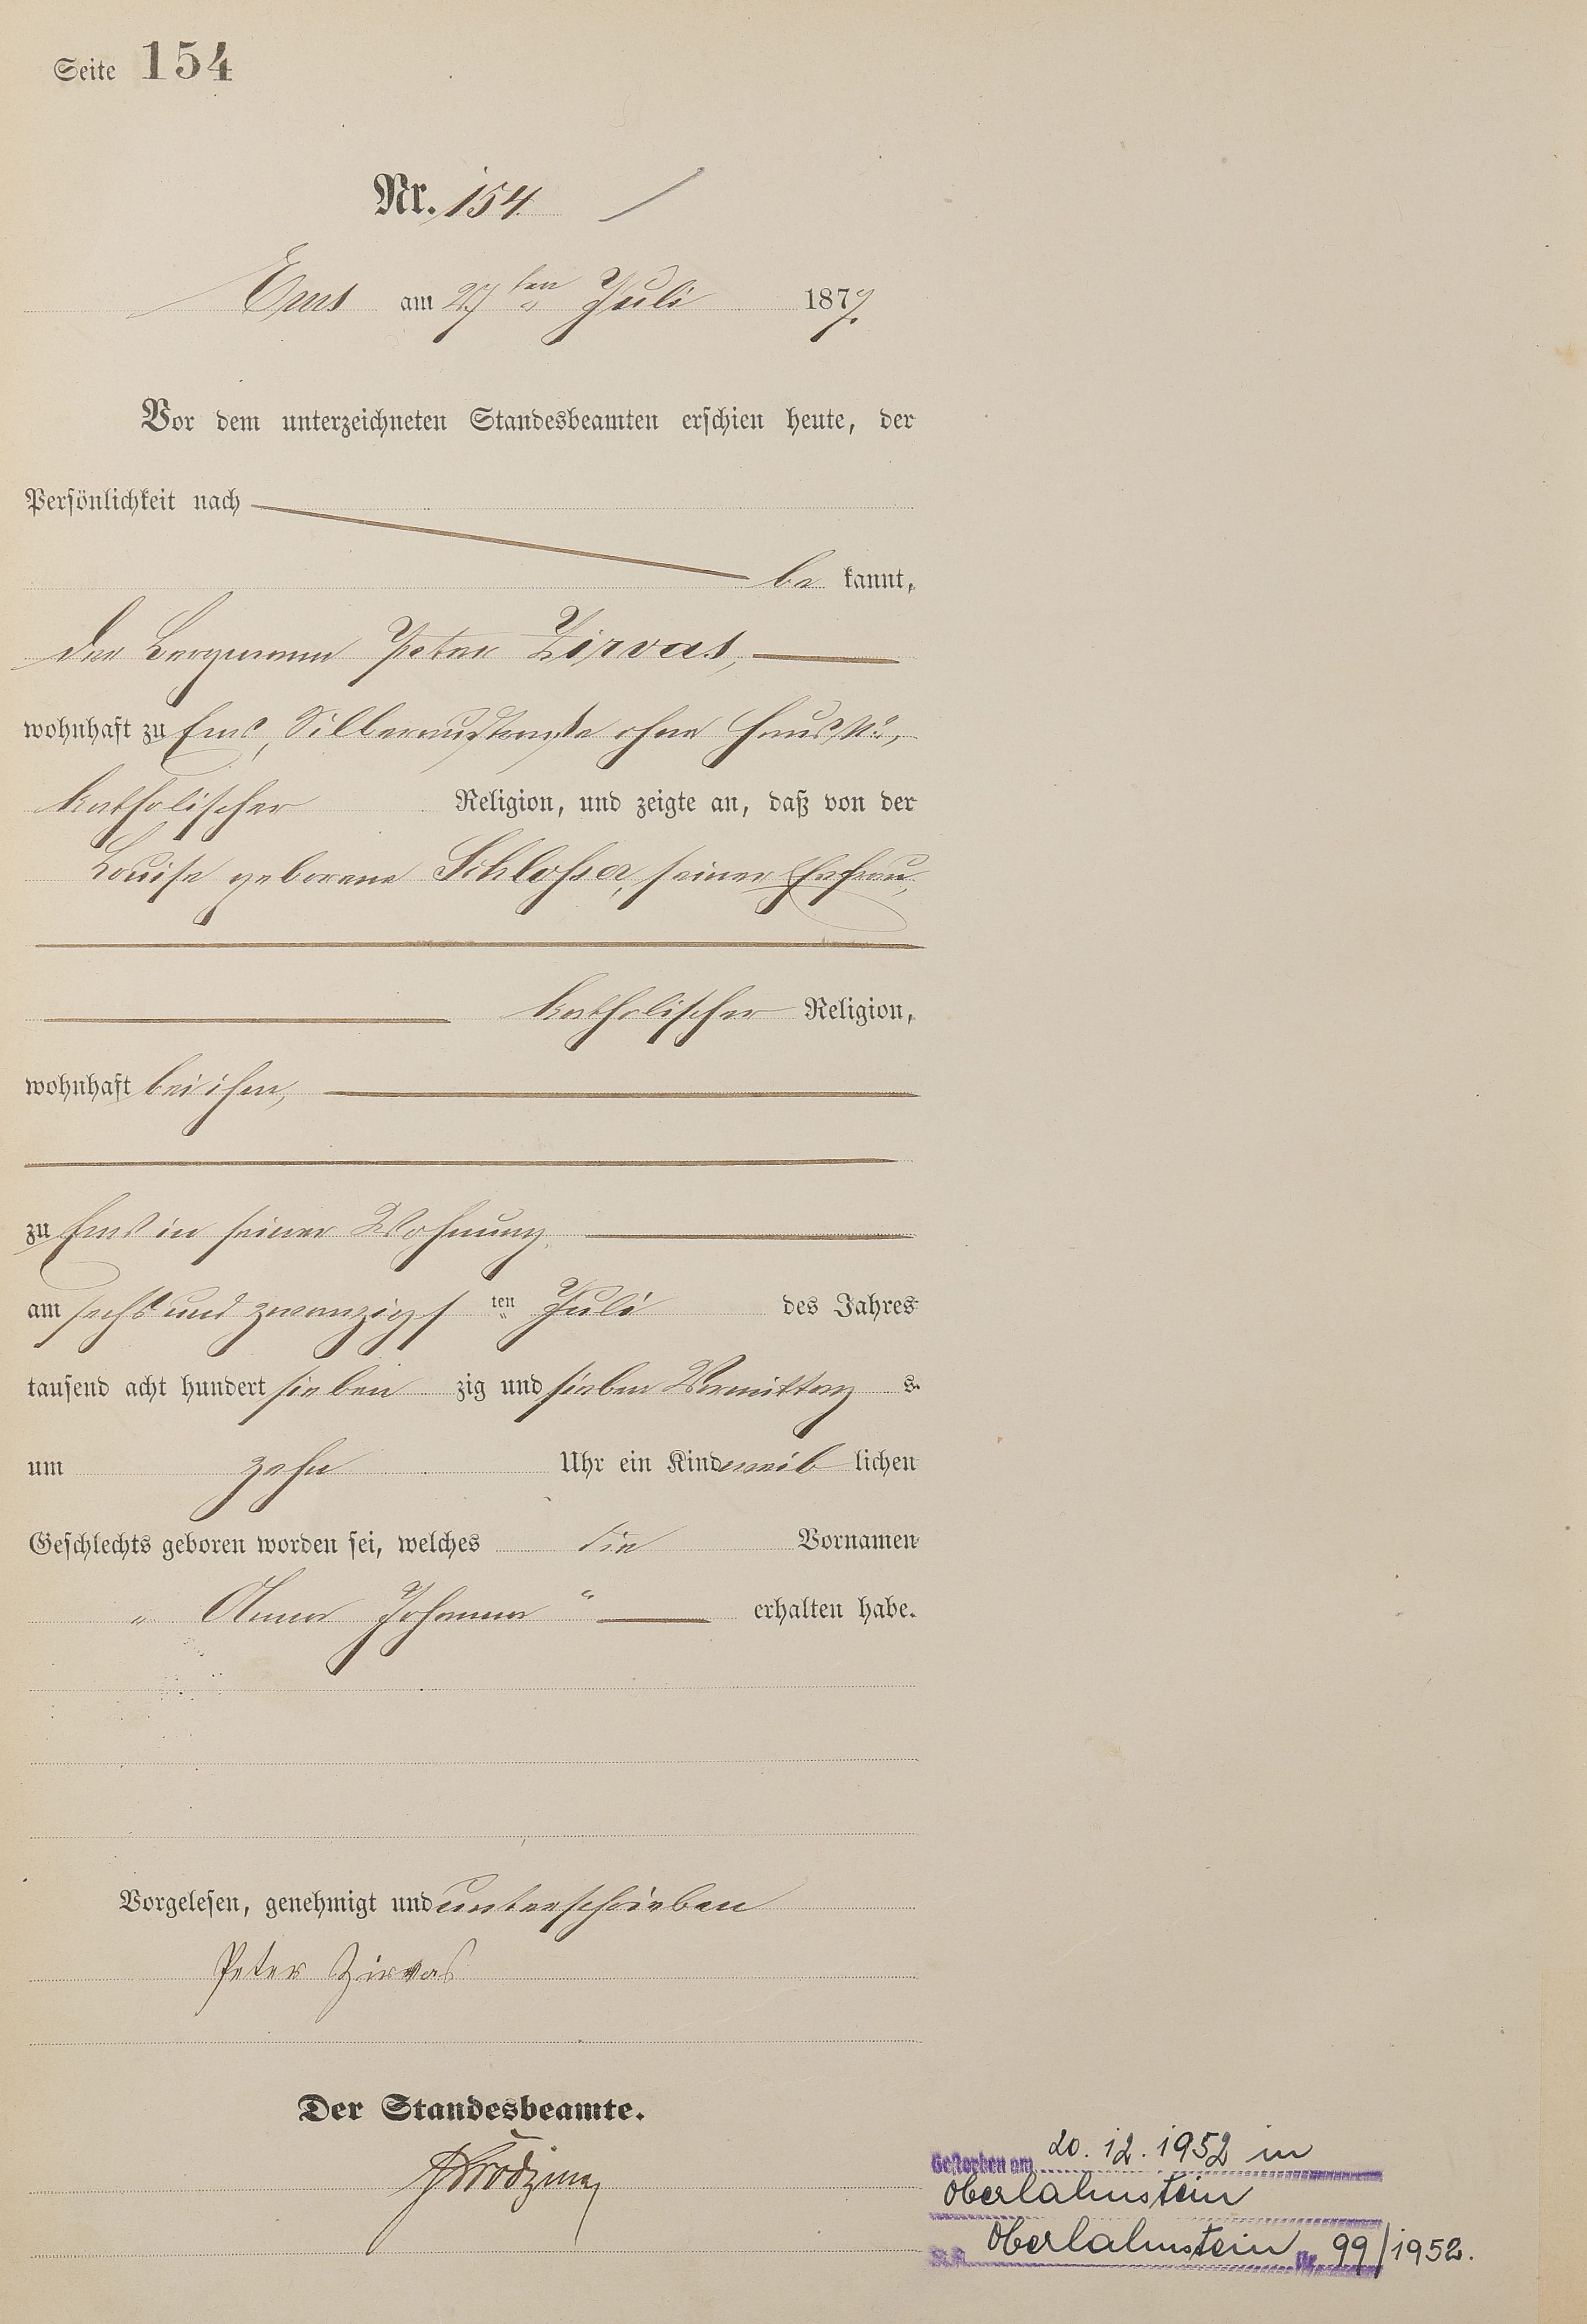 Seite 154
Nr. 154.
Ems am 27ten Juli 1877.
Vor dem unterzeichneten Standesbeamten erschien heute, der
Persönlichkeit nach
be kannt,
der Bergmann Peter Zirvas,
wohnhaft zu Ems, Silberaustraße ohne Haus No,
katholischer Religion, und zeigte an, daß von der
Louise geborene Schlosser, seiner Ehefrau,
katholischer Religion,
wohnhaft bei ihm,
zu Ems in seiner Wohnung,
am sechs und zwanzigs ten Juli des Jahres
tausend acht hundert sieben zig und sieben Vormittag s
um zehn Uhr ein Kind weib lichen
Geschlechts geboren worden sei, welches die Vornamen
„ Anna Johanna “ erhalten habe.
Vorgelesen, genehmigt und unterschrieben
Peter Zirvas
Der Standesbeamte.
Gestorben am 20.12.1952 in
Oberlahnstein
St.A. Oberlahnstein Nr. 99/1952.